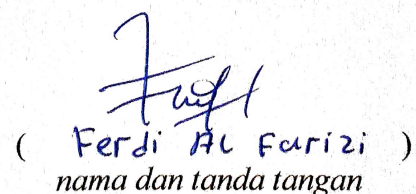 ( Ferdi Al Farizi )
nama dan tanda tangan